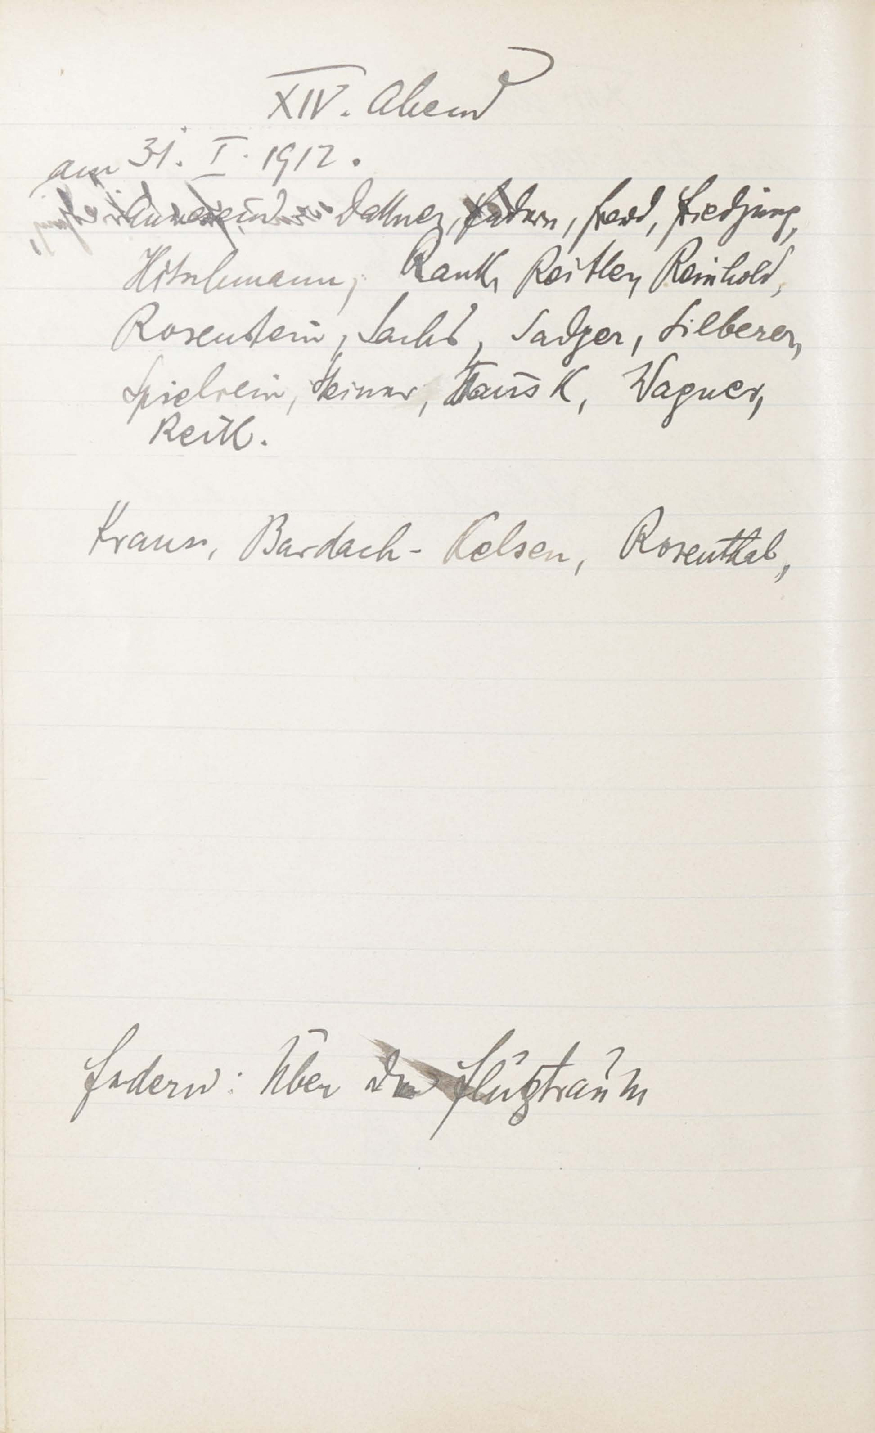 XIV. Abend
am 31. I. 1912.
Anwesend: Dattner, Federn, Freud, Friedjung,
Hitschmann, Rank, Reitler, Reinhold,
Rosenstein, Sachs, Sadger, Silberer,
Spielrein, Steiner, Tausk, Wagner,
Reik.
Kraus, Bardach-Kelsen, Rosenthal,
Federn: Über den Flugtraum